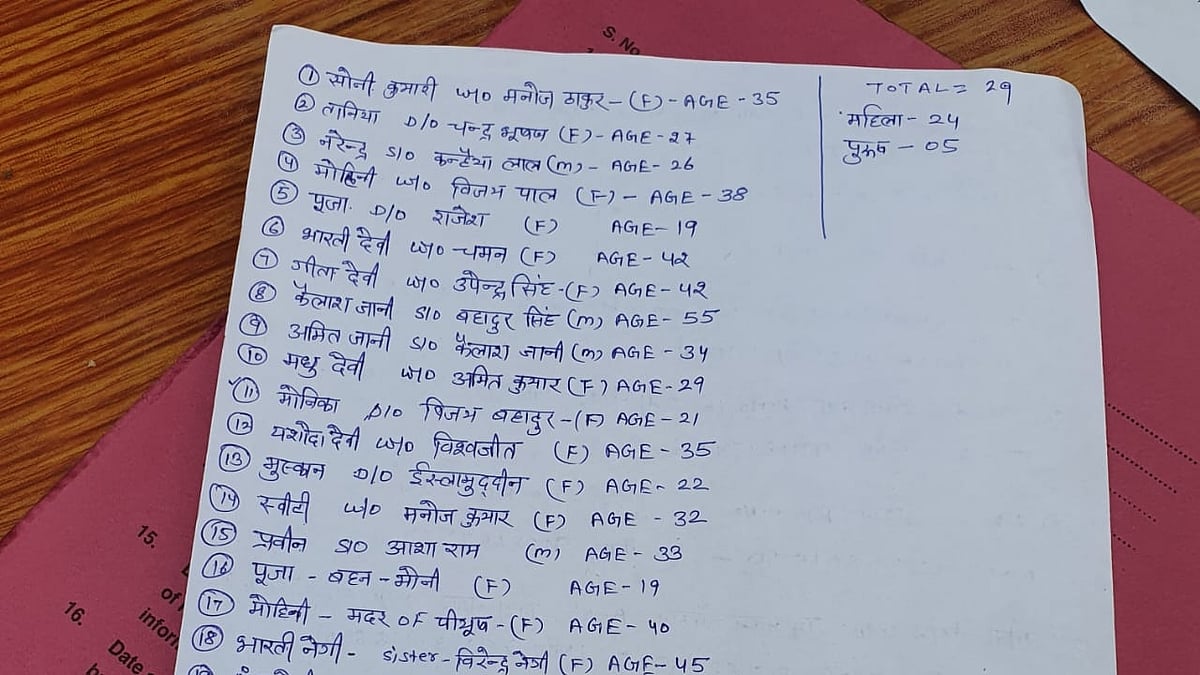 S. No
① सोनी कुमारी W/O मनोज ठाकुर - (F) - AGE - 35
② तानिया D/O चन्द्र भूषण (F) - AGE - 27
③ नरेन्द्र S/O कन्हैया लाल (M) - AGE - 26
④ मोहिनी W/O विजय पाल (F) - AGE - 38
⑤ पूजा D/O राजेश (F) AGE - 19
⑥ भारती देवी W/O चमन (F) AGE - 42
⑦ गीता देवी W/O उपेन्द्र सिंह - (F) AGE - 42
⑧ कैलाश जानी S/O बहादुर सिंह (M) AGE - 55
⑨ अमित जानी S/O कैलाश जानी (M) AGE - 34
⑩ मधु देवी W/O अमित कुमार (F) AGE - 29
⑪ मोनिका D/O विजय बहादुर - (F) AGE - 21
⑫ यशोदा देवी W/O विश्वजीत (F) AGE - 35
⑬ मुस्कान D/O ईस्लामुद्दीन (F) AGE - 22
⑭ स्वीटी W/O मनोज कुमार (F) AGE - 32
⑮ प्रवीन S/O आशा राम (M) AGE - 33
⑯ पूजा - बहन - मोनी (F) AGE - 19
⑰ मोहिनी - मदर OF पीयूष - (F) AGE - 40
⑱ भारती नेगी - sister - विरेन्द्र नेगी (F) AGE - 45
TOTAL = 29
महिला - 24
पुरूष - 05
15.
of
inform
16.
Date